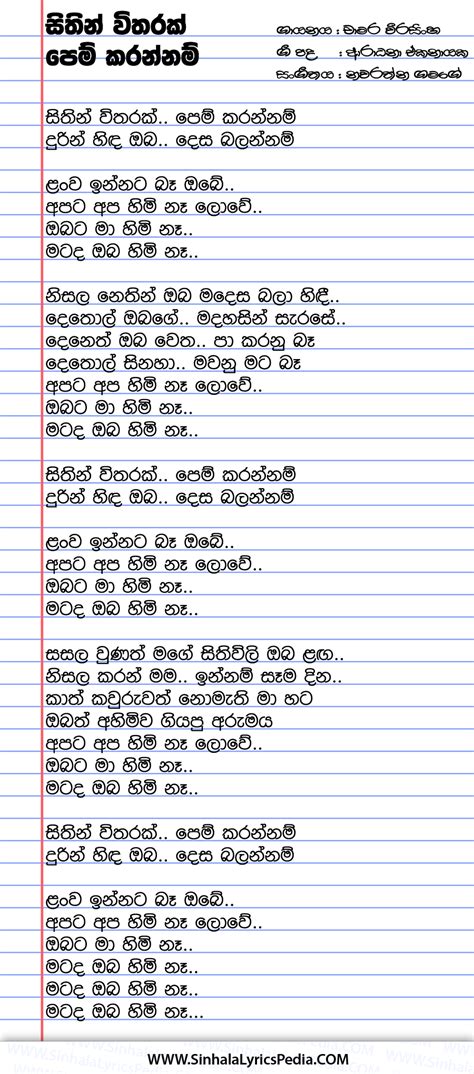 සිතින් විතරක්
පෙම් කරන්නම්
ගායනය : චාමර වීරසිංහ
ගී පද : ආරාධනා ඒකනායක
සංගීතය : නවරත්න ගමගේ
සිතින් විතරක්.. පෙම් කරන්නම්
දුරින් හිඳ ඔබ.. දෙස බලන්නම්
ළංව ඉන්නට බෑ ඔබේ..
අපට අප හිමි නෑ ලොවේ..
ඔබට මා හිමි නෑ..
මටද ඔබ හිමි නෑ..
නිසල නෙතින් ඔබ මදෙස බලා හිඳී..
දෙතොල් ඔබගේ.. මදහසින් සැරසේ..
දෙනෙත් ඔබ වෙත.. පා කරනු බෑ
දෙතොල් සිනහා.. මවනු මට බෑ
අපට අප හිමි නෑ ලොවේ..
ඔබට මා හිමි නෑ..
මටද ඔබ හිමි නෑ..
සිතින් විතරක්.. පෙම් කරන්නම්
දුරින් හිඳ ඔබ.. දෙස බලන්නම්
ළංව ඉන්නට බෑ ඔබේ..
අපට අප හිමි නෑ ලොවේ..
ඔබට මා හිමි නෑ..
මටද ඔබ හිමි නෑ..
සසල වුණත් මගේ සිතිවිලි ඔබ ළඟ..
නිසල කරන් මම.. ඉන්නම් සෑම දින..
කාත් කවුරුවත් නොමැති මා හට
ඔබත් අහිමිව ගියපු අරුමය
අපට අප හිමි නෑ ලොවේ..
ඔබට මා හිමි නෑ..
මටද ඔබ හිමි නෑ..
සිතින් විතරක්.. පෙම් කරන්නම්
දුරින් හිඳ ඔබ.. දෙස බලන්නම්
ළංව ඉන්නට බෑ ඔබේ..
අපට අප හිමි නෑ ලොවේ..
ඔබට මා හිමි නෑ..
මටද ඔබ හිමි නෑ..
මටද ඔබ හිමි නෑ..
මටද ඔබ හිමි නෑ...
www.SinhalaLyricsPedia.COM